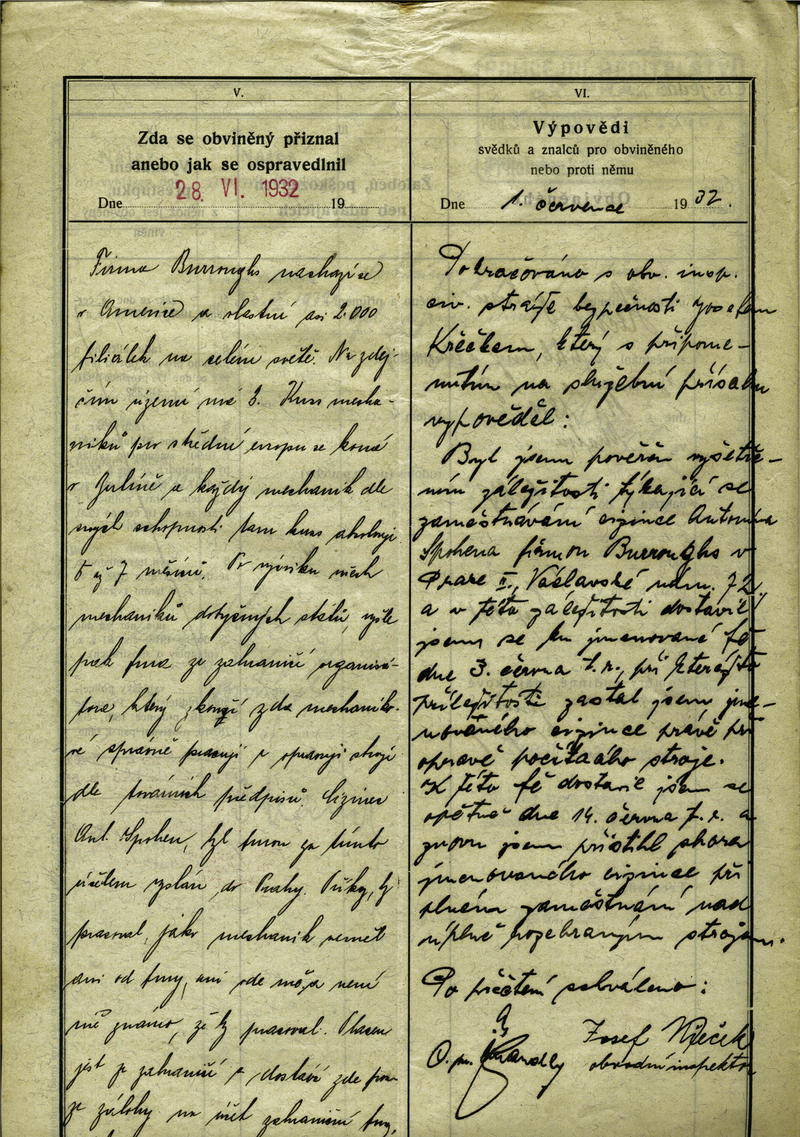 V.
Zda se obviněný přiznal
anebo jak se ospravedlnil
Dne 28. VI. 1932 19
Firma Burroughs nachází se
v Americe a vlastní asi 2.000
filiálek na celém světě. Na zdej-
ším území má 3. Kurs mecha-
niků pro střední evropu se koná
v Berlíně a každý mechanik dle
svých schopností tam kurs absolvuje
6 až 7 měsíců. Po výcviku všech
mechaniků dotyčných států, vyšle
pak firma ze zahraničí organisá-
tora, který zkouší zda mechaniko-
vé správně pracují a opravují stroje
dle továrních předpisů. Cizinec
Ant. Spohen, byl firmou za tímto
účelem vyslán do Prahy. Příkaz, by
pracoval, jako mechanik neměl
ani od firmy, ani ode mě a není
mě známo, že by pracoval. Placen
jest ze zahraničí a dostává zde pou-
ze zálohy na účet zahraniční firmy,
VI.
Výpovědi
svědků a znalců pro obviněného
nebo proti němu
Dne 1. července 1932.
Pokračováno s obv. insp.
civ. stráže bezpečnosti Josefem
Křečkem, který s připome-
nutím na služební přísahu
vypověděl:
Byl jsem pověřen vyšetře-
ním záležitosti týkající se
zaměstnávání cizince Antonína
Spohena firmou Burroughs v
Praze II., Václavské nám. 72
a v této záležitosti dostavil
jsem se ku jmenované fě
dne 3. června t. r., při kteréžto
příležitosti zastal jsem jme-
novaného cizince právě při
opravě počítacího stroje.
K této fě dostavil jsem se
opětně dne 14. června t. r. a
znovu jsem přistihl shora
jmenovaného cizince při
plném zaměstnání nad
úplně rozebraným strojem.
Po přečtení schváleno:
Josef Křeček
obvodní inspektor